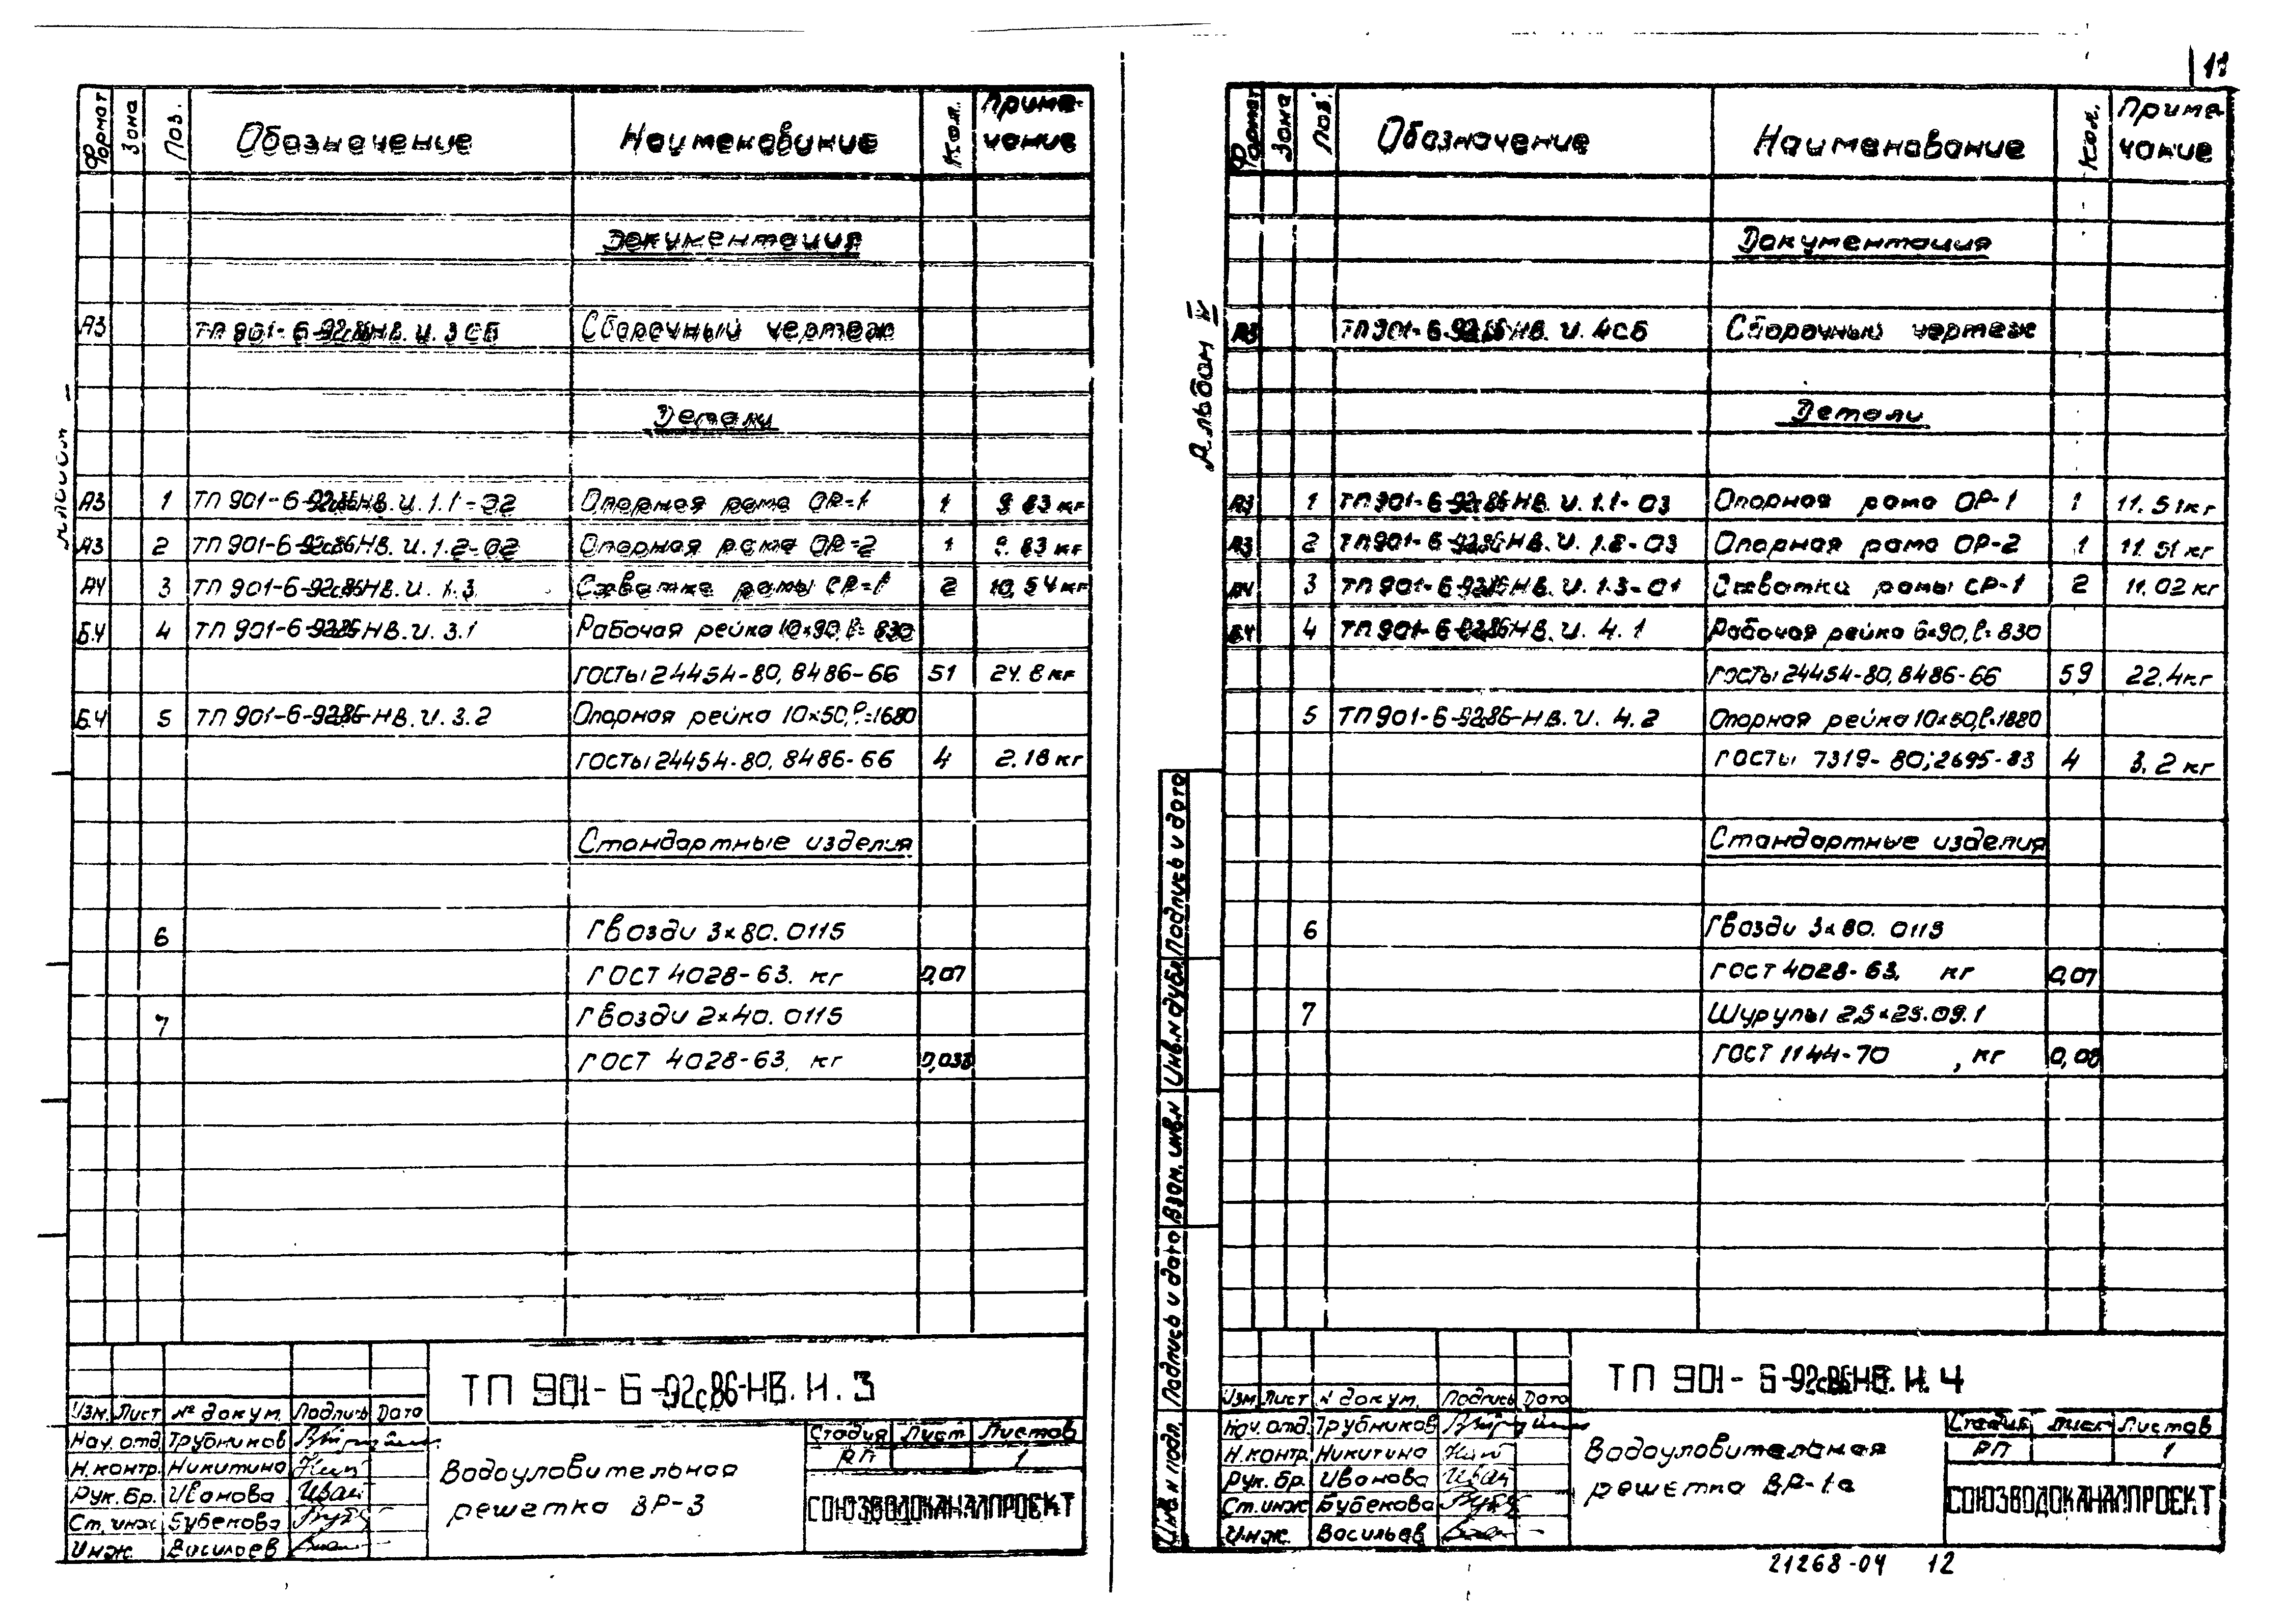 11
Формат Зона Поз. Обозначение Наименование Кол. Приме-
чание
Документация
А3 ТП 901-6-92с86 НВ.И.3СБ Сборочный чертеж
Детали
А3 1 ТП 901-6-92с86 НВ.И.1.1-02 Опорная рама ОР-1 1 9.83 кг
А3 2 ТП 901-6-92с86 НВ.И.1.2-02 Опорная рама ОР-2 1 9.83 кг
А4 3 ТП 901-6-92с86 НВ.И.1.3 Схватка рамы СР-1 2 10,54 кг
Б.Ч 4 ТП 901-6-92с86 НВ.И.3.1 Рабочая рейка 10×90, l=830
ГОСТы 24454-80, 8486-66 51 24.8 кг
Б.Ч 5 ТП 901-6-92с86-НВ.И.3.2 Опорная рейка 10×50, l=1680
ГОСТы 24454-80, 8486-66 4 2.18 кг
Стандартные изделия
6 Гвозди 3×80.0115
ГОСТ 4028-63. кг 0,07
7 Гвозди 2×40.0115
ГОСТ 4028-63, кг 0,038
ТП 901-6-92с86-НВ.И.3
Изм. Лист № докум. Подпись Дата
Нач. отд Трубников
Н.контр. Никитина
Рук. бр. Иванова
Ст. инж. Бубекова
Инж. Васильев
Водоуловительная
решетка ВР-3
Стадия Лист Листов
РП 1
СОЮЗВОДОКАНАЛПРОЕКТ
Альбом
Формат Зона Поз. Обозначение Наименование Кол. Приме-
чание
Документация
А3 ТП 901-6-92с86 НВ.И.4СБ Сборочный чертеж
Детали
А3 1 ТП 901-6-92с86 НВ.И.1.1-03 Опорная рама ОР-1 1 11.51 кг
А3 2 ТП 901-6-92с86 НВ.И.1.2-03 Опорная рама ОР-2 1 11.51 кг
А4 3 ТП 901-6-92с86 НВ.И.1.3-01 Схватка рамы СР-1 2 11.02 кг
Б.Ч 4 ТП 901-6-92с86 НВ.И.4.1 Рабочая рейка 6×90, l=830
ГОСТы 24454-80, 8486-66 59 22.4 кг
5 ТП 901-6-92с86-НВ.И.4.2 Опорная рейка 10×50, l=1880
ГОСТы 7319-80; 2695-83 4 3.2 кг
Стандартные изделия
6 Гвозди 3×80.0115
ГОСТ 4028-63, кг 0,07
7 Шурупы 2,5×25.09.1
ГОСТ 1144-70 , кг 0,08
Инв. № подл. Подпись и дата Взам. инв.№ Инв.№ дубл. Подпись и дата
ТП 901-6-92с86-НВ.И.4
Изм. Лист № докум. Подпись Дата
Нач. отд. Трубников
Н.контр. Никитина
Рук. бр. Иванова
Ст. инж. Бубекова
Инж. Васильев
Водоуловительная
решетка ВР-1а
Стадия Лист Листов
РП 1
СОЮЗВОДОКАНАЛПРОЕКТ
21268-04 12